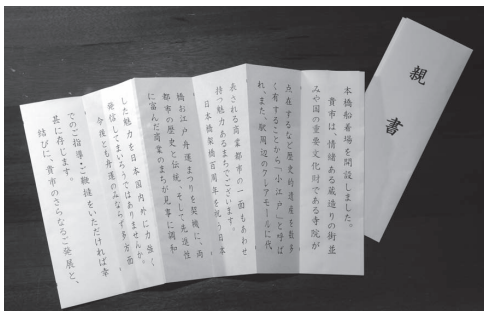 親書
本橋船着場を開設しました。
貴市は、情緒ある蔵造りの街並
みや国の重要文化財である寺院が
点在するなど歴史的遺産を数多
く有することから「小江戸」と呼ば
れ、また、駅周辺のクレアモールに代
表される商業都市の一面もあわせ
持つ魅力あるまちでございます。
日本橋架橋百周年を祝う日本
橋お江戸舟運まつりを契機に、両
都市の歴史と伝統、そして先進性
に富んだ商業のまちが見事に調和
した魅力を日本国内外に力強く
発信してまいろうではありませんか。
今後とも舟運のみならず多方面
でのご指導・ご鞭撻をいただければ幸
甚に存じます。
結びに、貴市のさらなるご発展と、